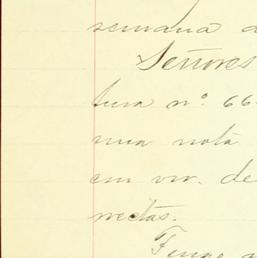 semana a
Señores
tura nº 66
una nota
em vir. de
rectas.
Tengo a